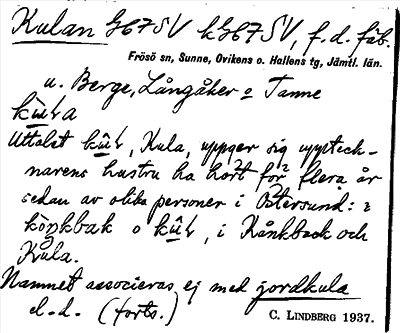 Kulan G67SV k.G67SV, f.d. fäb.
Frösö sn, Sunne, Ovikens o. Hallens tg, Jämtl. län.
u. Berge, Långåker o Tanne
Uttalet Kula, uppger sig uppteck-
narens hustru ha hört för flera år
sedan av olika personer i Östersund: i
o i Kånkback och
Kula.
Namnet associeras ej med jordkula
d.d. (forts.)
C. LINDBERG 1937.